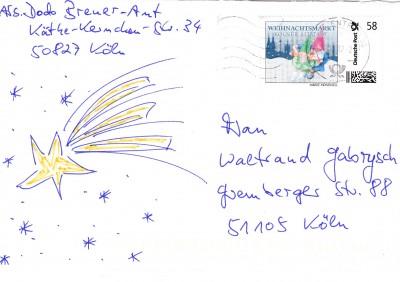 Abs. Dodo Brener-Amt
Käthe-Kernchen-Str. 34
50827 Köln
WEIHNACHTSMARKT
KÖLNER
58
Deutsche Post
Han
Waltrand Gabrysch
Gremberger Str. 88
51105 Köln